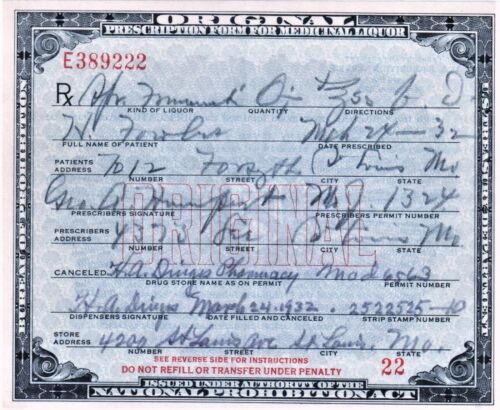 ORIGINAL
PRESCRIPTION FORM FOR MEDICINAL LIQUOR
E389222
BUREAU OF PROHIBITION
U.S. TREASURY DEPARTMENT
Rx
KIND OF LIQUOR QUANTITY DIRECTIONS
Mch 24-32
FULL NAME OF PATIENT DATE PRESCRIBED
PATIENTS ADDRESS 7012 Forsyth St Louis Mo
NUMBER STREET CITY STATE
Geo A M.D. 1324
PRESCRIBERS SIGNATURE PERMIT NUMBER
PRESCRIBERS ADDRESS 4373 St Louis Mo
NUMBER STREET CITY STATE
ORIGINAL
CANCELED H.A. Dinges Pharmacy Mo d 6563
DRUG STORE NAME AS ON PERMIT PERMIT NUMBER
H.A. Dinges March 24, 1932.
DISPENSERS SIGNATURE DATE FILLED AND CANCELED STRIP STAMP NUMBER
STORE ADDRESS 4200 St Louis Ave St. Louis, Mo.
NUMBER STREET CITY STATE
SEE REVERSE SIDE FOR INSTRUCTIONS
DO NOT REFILL OR TRANSFER UNDER PENALTY
22
ISSUED UNDER AUTHORITY OF THE
NATIONAL PROHIBITION ACT